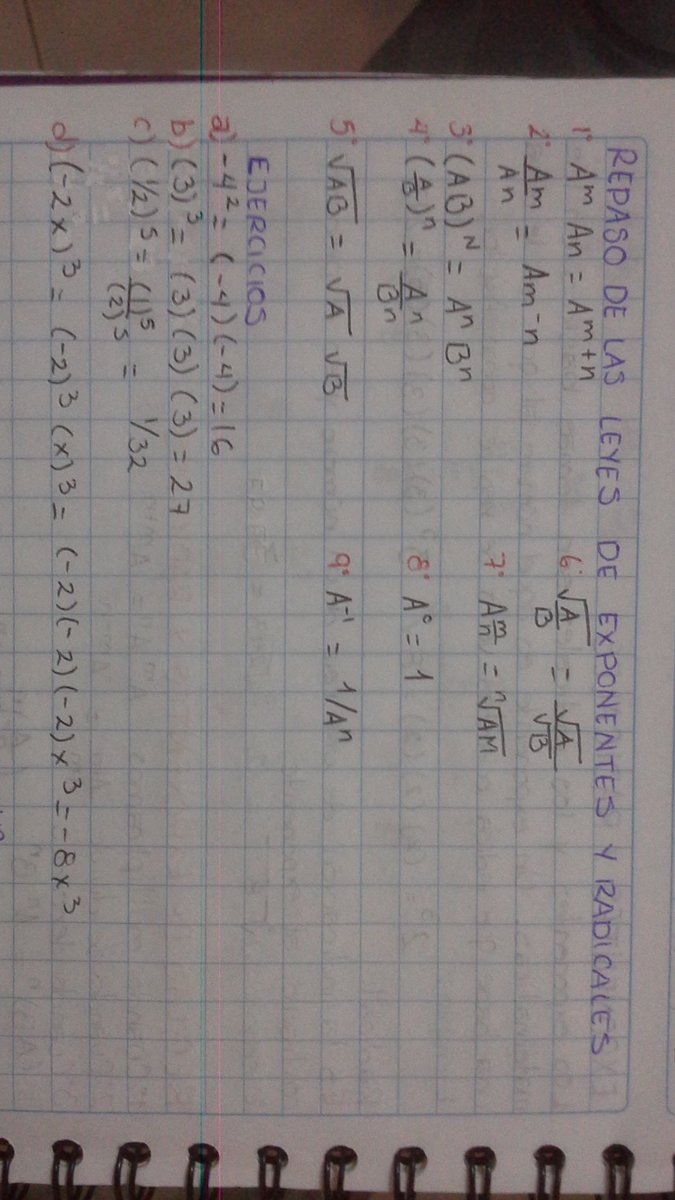 REPASO DE LAS LEYES DE EXPONENTES Y RADICALES
1° A^m A^n = A^m+n
2° A^m/A^n = A^m-n
3° (AB)^N = A^n B^n
4° (A/B)^n = A^n/B^n
5° √AB = √A √B
6° √A/B = √A/√B
7° A^m/n = ^n√AM
8° A° = 1
9° A^-1 = 1/A^n
EJERCICIOS
a) -4² = (-4)(-4) = 16
b) (3)³ = (3)(3)(3) = 27
c) (1/2)⁵ = (1)⁵/(2)⁵ = 1/32
d) (-2x)³ = (-2)³ (x)³ = (-2)(-2)(-2)x³ = -8x³